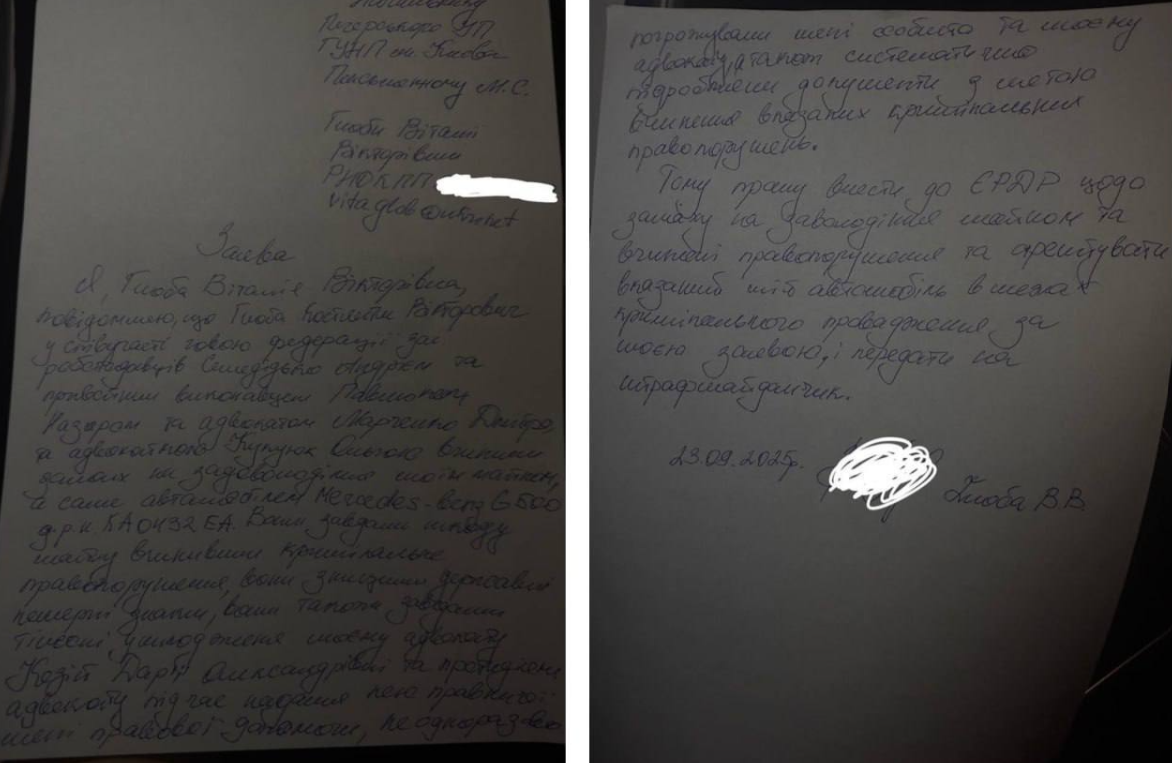 Печерського УП
ГУНП м. Києва
М.С.
Глоби Віталії
Вікторівни
РНОКПП
Заява
Я, Глоба Віталія Вікторівна,
повідомляю, що Глоба Вікторович
у співучасті з головою федерації
роботодавців Андрієм та
приватним виконавцем
Назаром та адвокатом Марченко Дмитро,
та адвокаткою Ольгою вчинили
замах на заволодіння моїм майном,
а саме автомобілем Mercedes-benz G 500
д.р.н. КА0432ЕА. Вони завдали шкоду
майну вчинивши кримінальне
правопорушення, вони знищили державні
номерні знаки, вони також завдали
тілесні ушкодження моєму адвокату
Козій Дар'ї Олександрівні та
адвокату під час надання нею
мені правової допомоги, неодноразово
погрожували мені особисто та моєму
адвокату, а також систематично
підроблені документи з метою
вчинення вказаних кримінальних
правопорушень.
Тому прошу внести до ЄРДР щодо
замаху на заволодіння майном та
вчинені правопорушення та арештувати
вказаний мій автомобіль в межах
кримінального провадження за
моєю заявою, і передати на
штрафмайданчик.
23.09.2025р. Глоба В.В.